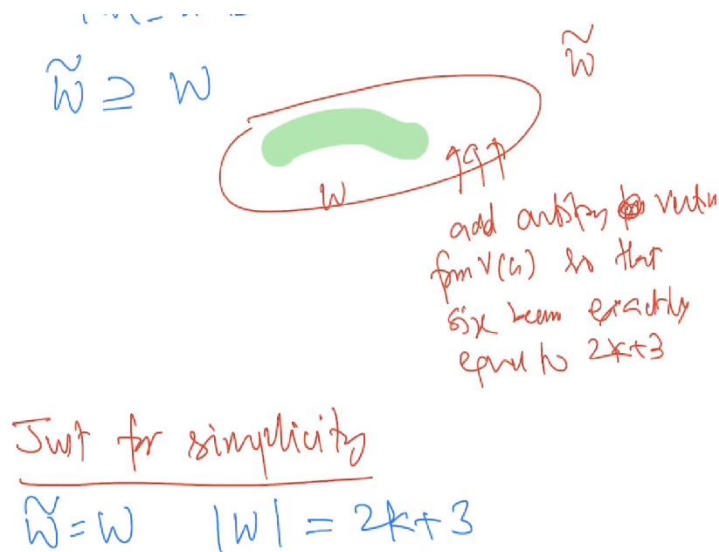 W̃
W̃ ⊇ W
W
add arbitrary vertices
from V(G) so that
size become exactly
equal to 2k+3
Just for simplicity
W̃ = W |W| = 2k+3